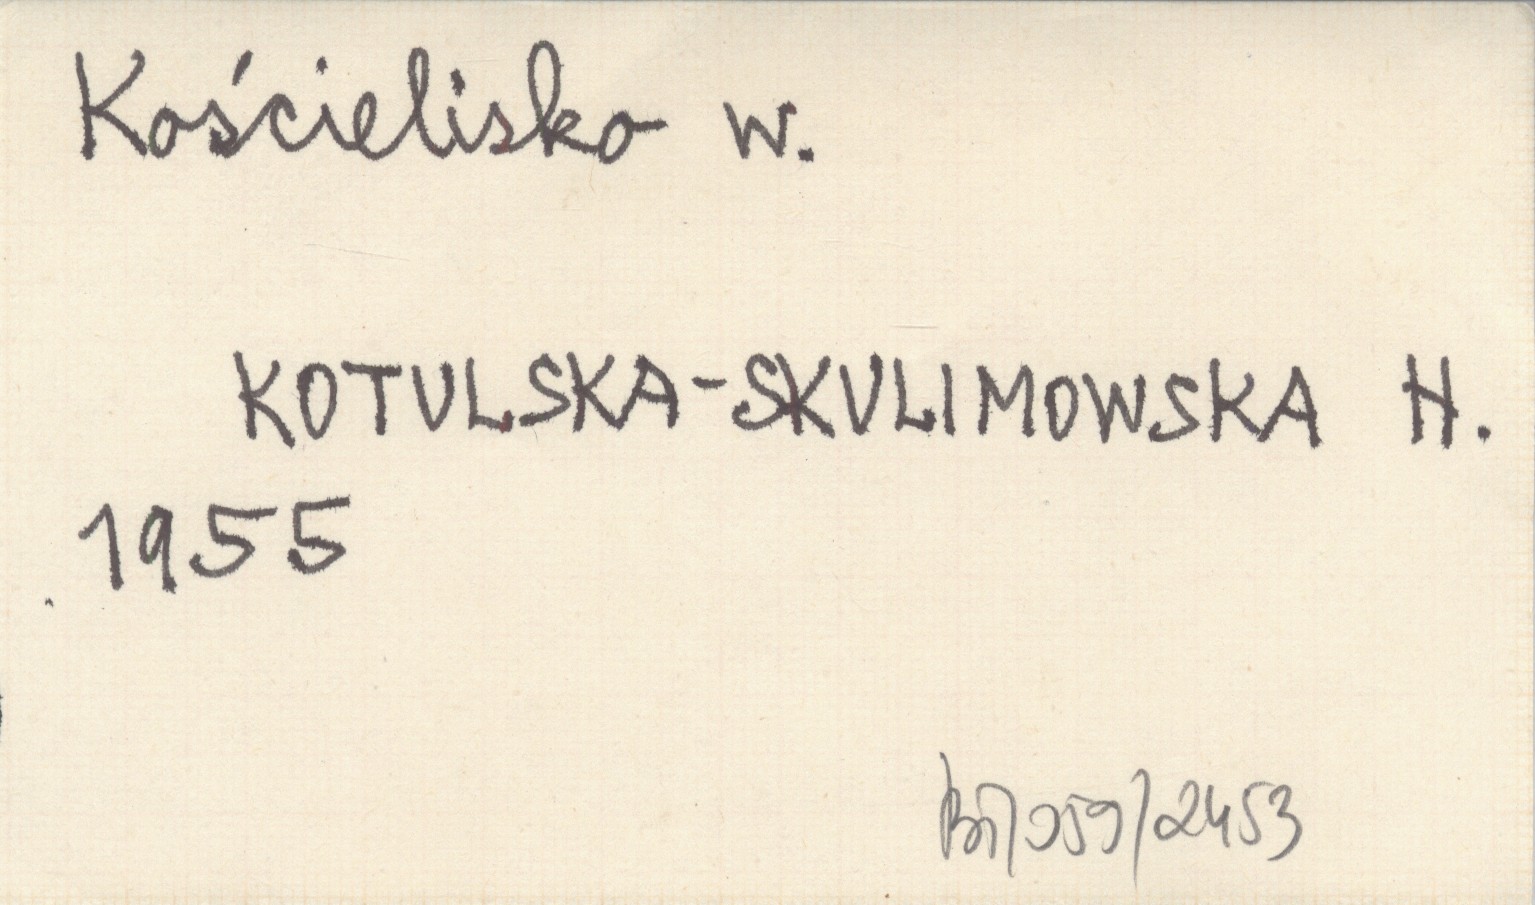 Kościelisko w.
KOTULSKA-SKULIMOWSKA H.
1955
2453